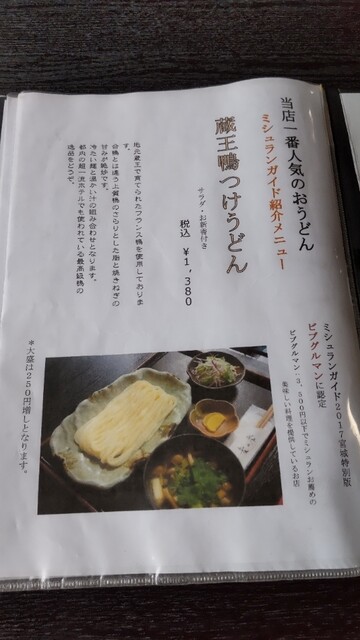 当店一番人気のおうどん
ミシュランガイド紹介メニュー
蔵王鴨つけうどん
サラダ・お新香付き
税込 ¥1,380
地元蔵王で育てられたフランス鴨を使用しております。
合鴨とは違う上質鴨のさらりとした脂と焼きねぎの甘みが絶妙です。
冷たい麺と温かい汁の組み合わせとなります。
都内の超一流ホテルでも使われている最高級鴨の逸品をどうぞ。
ミシュランガイド2017宮城特別版
ビブグルマンに認定
ビブグルマン-3,500円以下でミシュランお薦めの
美味しい料理を提供しているお店
*大盛は250円増しとなります。